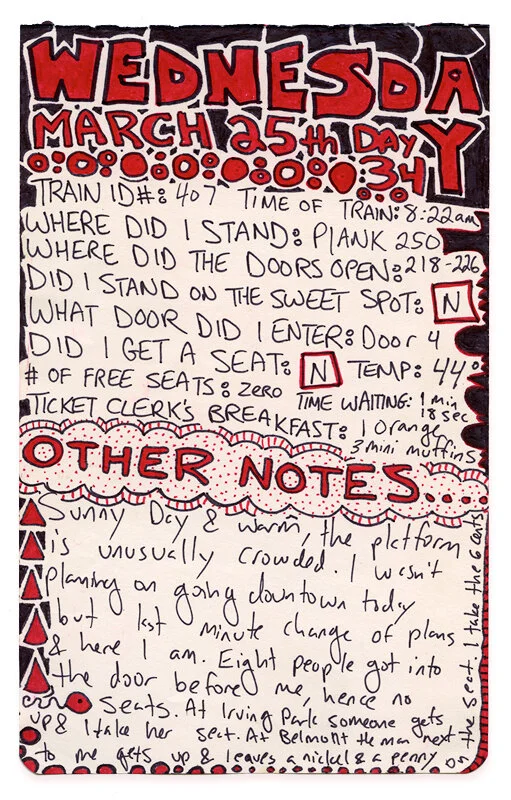 WEDNESDAY
MARCH 25th DAY 34
TRAIN ID#: 407 TIME OF TRAIN: 8:22am
WHERE DID I STAND: PLANK 250
WHERE DID THE DOORS OPEN: 218-226
DID I STAND ON THE SWEET SPOT: N
WHAT DOOR DID I ENTER: Door 4
DID I GET A SEAT: N TEMP: 44°
# OF FREE SEATS: ZERO TIME WAITING: 1 min 18 sec
TICKET CLERK'S BREAKFAST: 1 Orange
3 mini muffins
OTHER NOTES....
Sunny Day & warm, the platform
is unusually crowded. I wasn't
planing on going downtown today
but last minute change of plans
& here I am. Eight people got into
the door before me, hence no
Seats. At Irving Park someone gets
up & I take her seat. At Belmont the man next
to me gets up & leaves a nickel & a penny
on the seat. I take the 6 cents